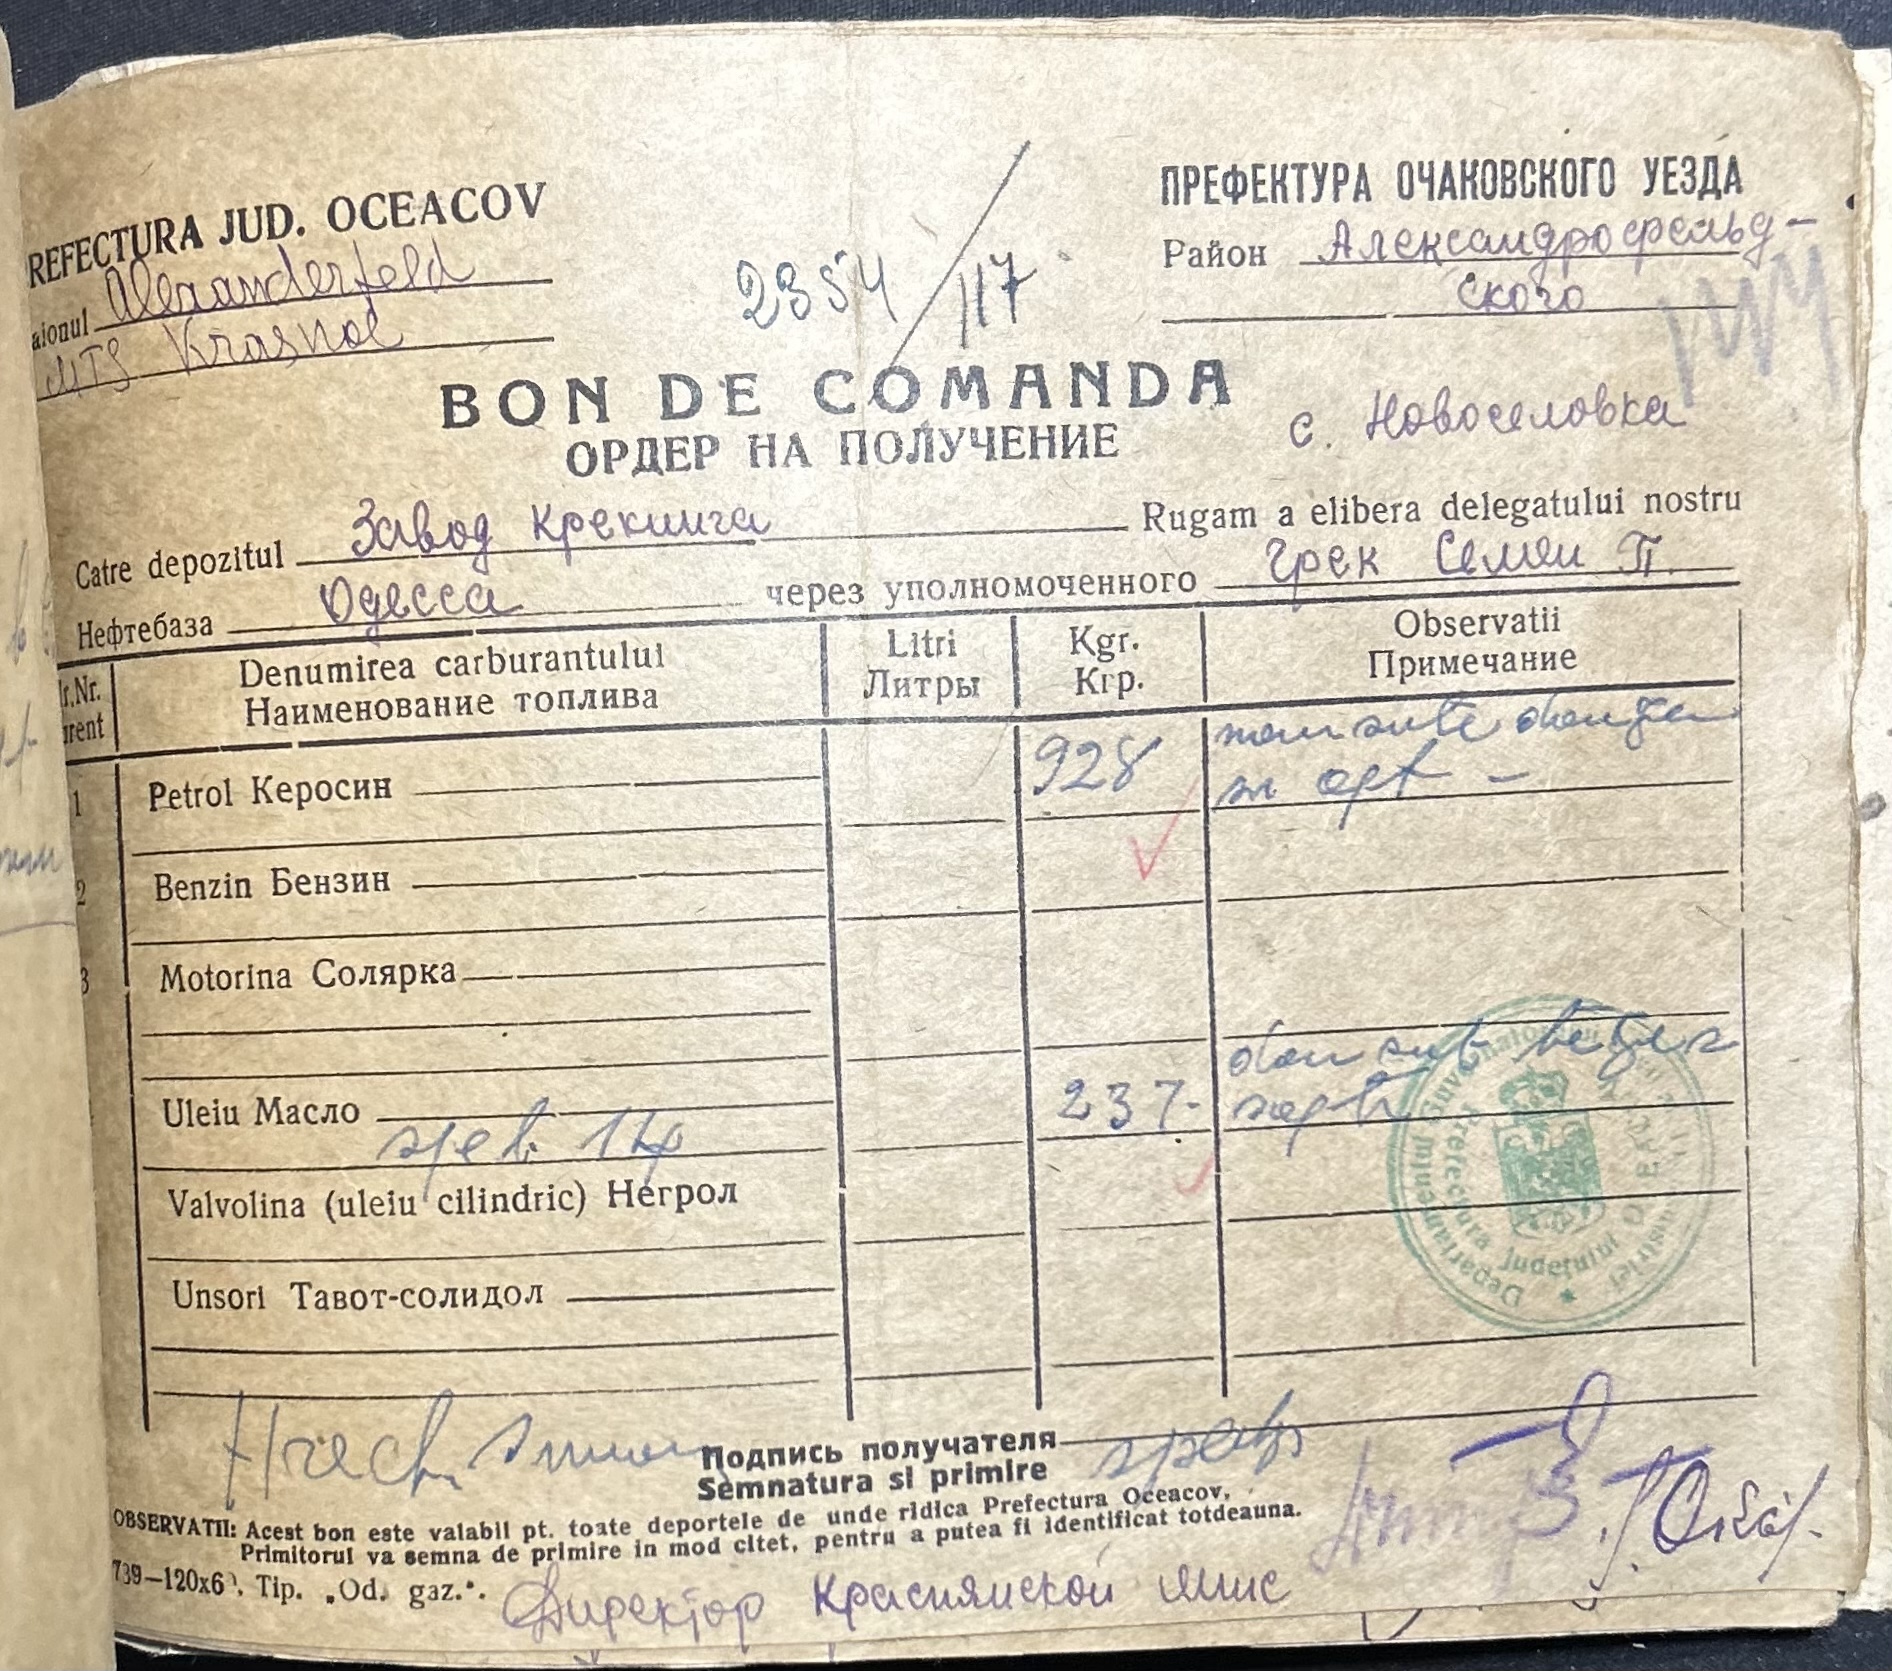 REFECTURA JUD. OCEACOV
aionul Alexanderfeld
MTS Krasnoe
2354/117
ПРЕФЕКТУРА ОЧАКОВСКОГО УЕЗДА
Район Александрофельд-
ского
BON DE COMANDA
ОРДЕР НА ПОЛУЧЕНИЕ
с. Новоселовка
Catre depozitul Завод Крекинга Rugam a elibera delegatului nostru
Нефтебаза Одесса через уполномоченного Грек Семен П.
r.Nr. Denumirea carburantului Litri Kgr. Observatii
rent Наименование топлива Литры Кгр. Примечание
928 noua sute douazeci
1 Petrol Керосин si opt -
2 Benzin Бензин
3 Motorina Солярка
doua sute treizeci
Uleiu Масло 237- sapte
Valvolina (uleiu cilindric) Негрол
Unsori Тавот-солидол
Подпись получателя
Semnatura si primire
OBSERVATII: Acest bon este valabil pt. toate deportele de unde ridica Prefectura Oceacov.
Primitorul va semna de primire in mod citet, pentru a putea fi identificat totdeauna.
739—120x6 Tip. „Od. gaz.".
Директор Краснянской ммс
Departamentul Guvernatorului
Prefectura Județului OCEACOV